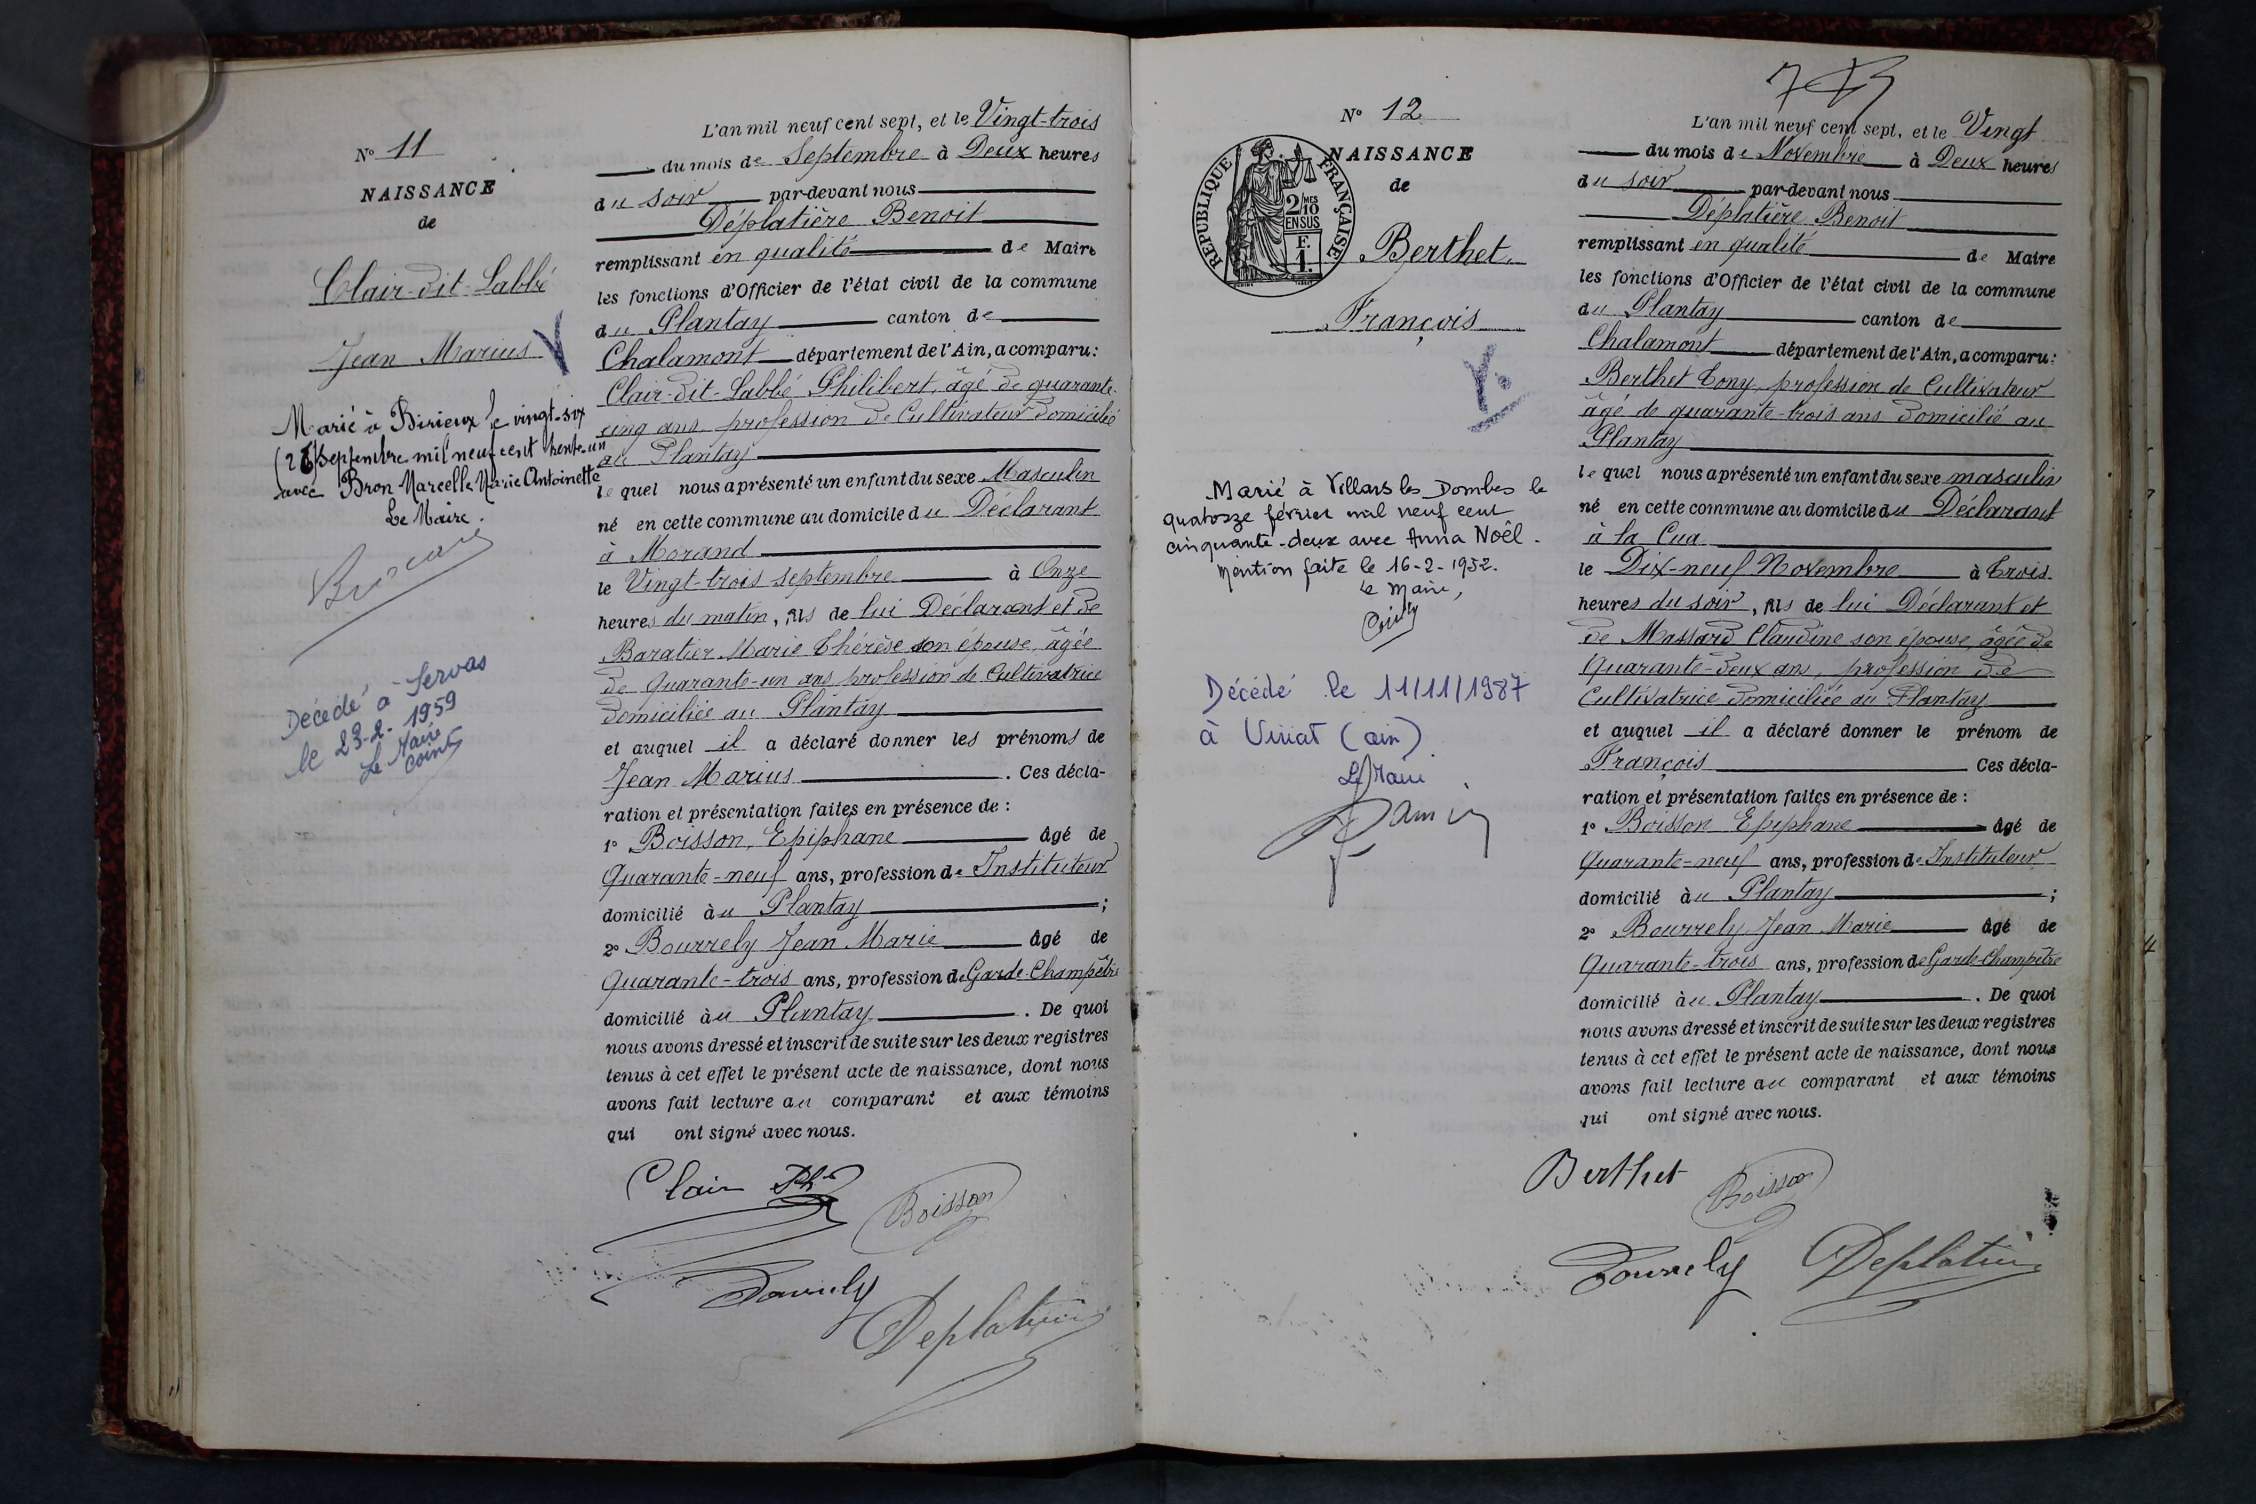 N° 11
NAISSANCE
de
Clair-dit-Labbé
Jean Marius
Marié à Birieux le vingt-six
(26) Septembre mil neuf cent trente-un
avec Bron Marcelle Marie Antoinette
Le Maire.
Décédé à Servas
le 23-2-1959
Le Maire
L'an mil neuf cent sept, et le Vingt-trois
du mois de Septembre à Deux heures
du soir par-devant nous
Déplatière Benoit
remplissant en qualité de Maire
les fonctions d'Officier de l'état civil de la commune
du Plantay canton de
Chalamont département de l'Ain, a comparu:
Clair-dit-Labbé Philibert, âgé de quarante-
cinq ans, profession de Cultivateur domicilié
au Plantay
lequel nous a présenté un enfant du sexe Masculin
né en cette commune au domicile du Déclarant
à Morand
le Vingt-trois Septembre à Onze
heures du matin, fils de lui Déclarant et de
Baratier Marie Thérèse son épouse, âgée
de Quarante-un ans profession de Cultivatrice
domiciliée au Plantay
et auquel il a déclaré donner les prénoms de
Jean Marius . Ces décla-
ration et présentation faites en présence de :
1° Boisson, Epiphane âgé de
Quarante-neuf ans, profession de Instituteur
domicilié àu Plantay ;
2° Bourrely Jean Marie âgé de
Quarante-trois ans, profession de Garde-Champêtre
domicilié àu Plantay . De quoi
nous avons dressé et inscrit de suite sur les deux registres
tenus à cet effet le présent acte de naissance, dont nous
avons fait lecture au comparant et aux témoins
qui ont signé avec nous.
Clair Ph
Boisson
Bourrely
Deplatière
N° 12
NAISSANCE
de
RÉPUBLIQUE FRANÇAISE
2/10 MES
EN SUS
F.
1.
Berthet
François
Marié à Villars les Dombes le
quatorze février mil neuf cent
cinquante-deux avec Anna Noël.
Mention faite le 16-2-1952.
le Maire,
Décédé le 11/11/1987
à Viriat (ain)
Le Maire
L'an mil neuf cent sept, et le Vingt
du mois de Novembre à Deux heures
du soir par-devant nous
Déplatière Benoit
remplissant en qualité de Maire
les fonctions d'Officier de l'état civil de la commune
du Plantay canton de
Chalamont département de l'Ain, a comparu:
Berthet Tony, profession de Cultivateur
âgé de quarante-trois ans domicilié au
Plantay
lequel nous a présenté un enfant du sexe masculin
né en cette commune au domicile du Déclarant
à la Cua
le Dix-neuf Novembre à Trois
heures du soir, fils de lui Déclarant et
de Massard Claudine son épouse, âgée de
Quarante-deux ans, profession de
Cultivatrice domiciliée au Plantay
et auquel il a déclaré donner le prénom de
François Ces décla-
ration et présentation faites en présence de :
1° Boisson Epiphane âgé de
Quarante-neuf ans, profession de Instituteur
domicilié àu Plantay ;
2° Bourrely Jean Marie âgé de
Quarante-trois ans, profession de Garde-Champêtre
domicilié àu Plantay . De quoi
nous avons dressé et inscrit de suite sur les deux registres
tenus à cet effet le présent acte de naissance, dont nous
avons fait lecture au comparant et aux témoins
qui ont signé avec nous.
Berthet
Boisson
Bourrely
Deplatière